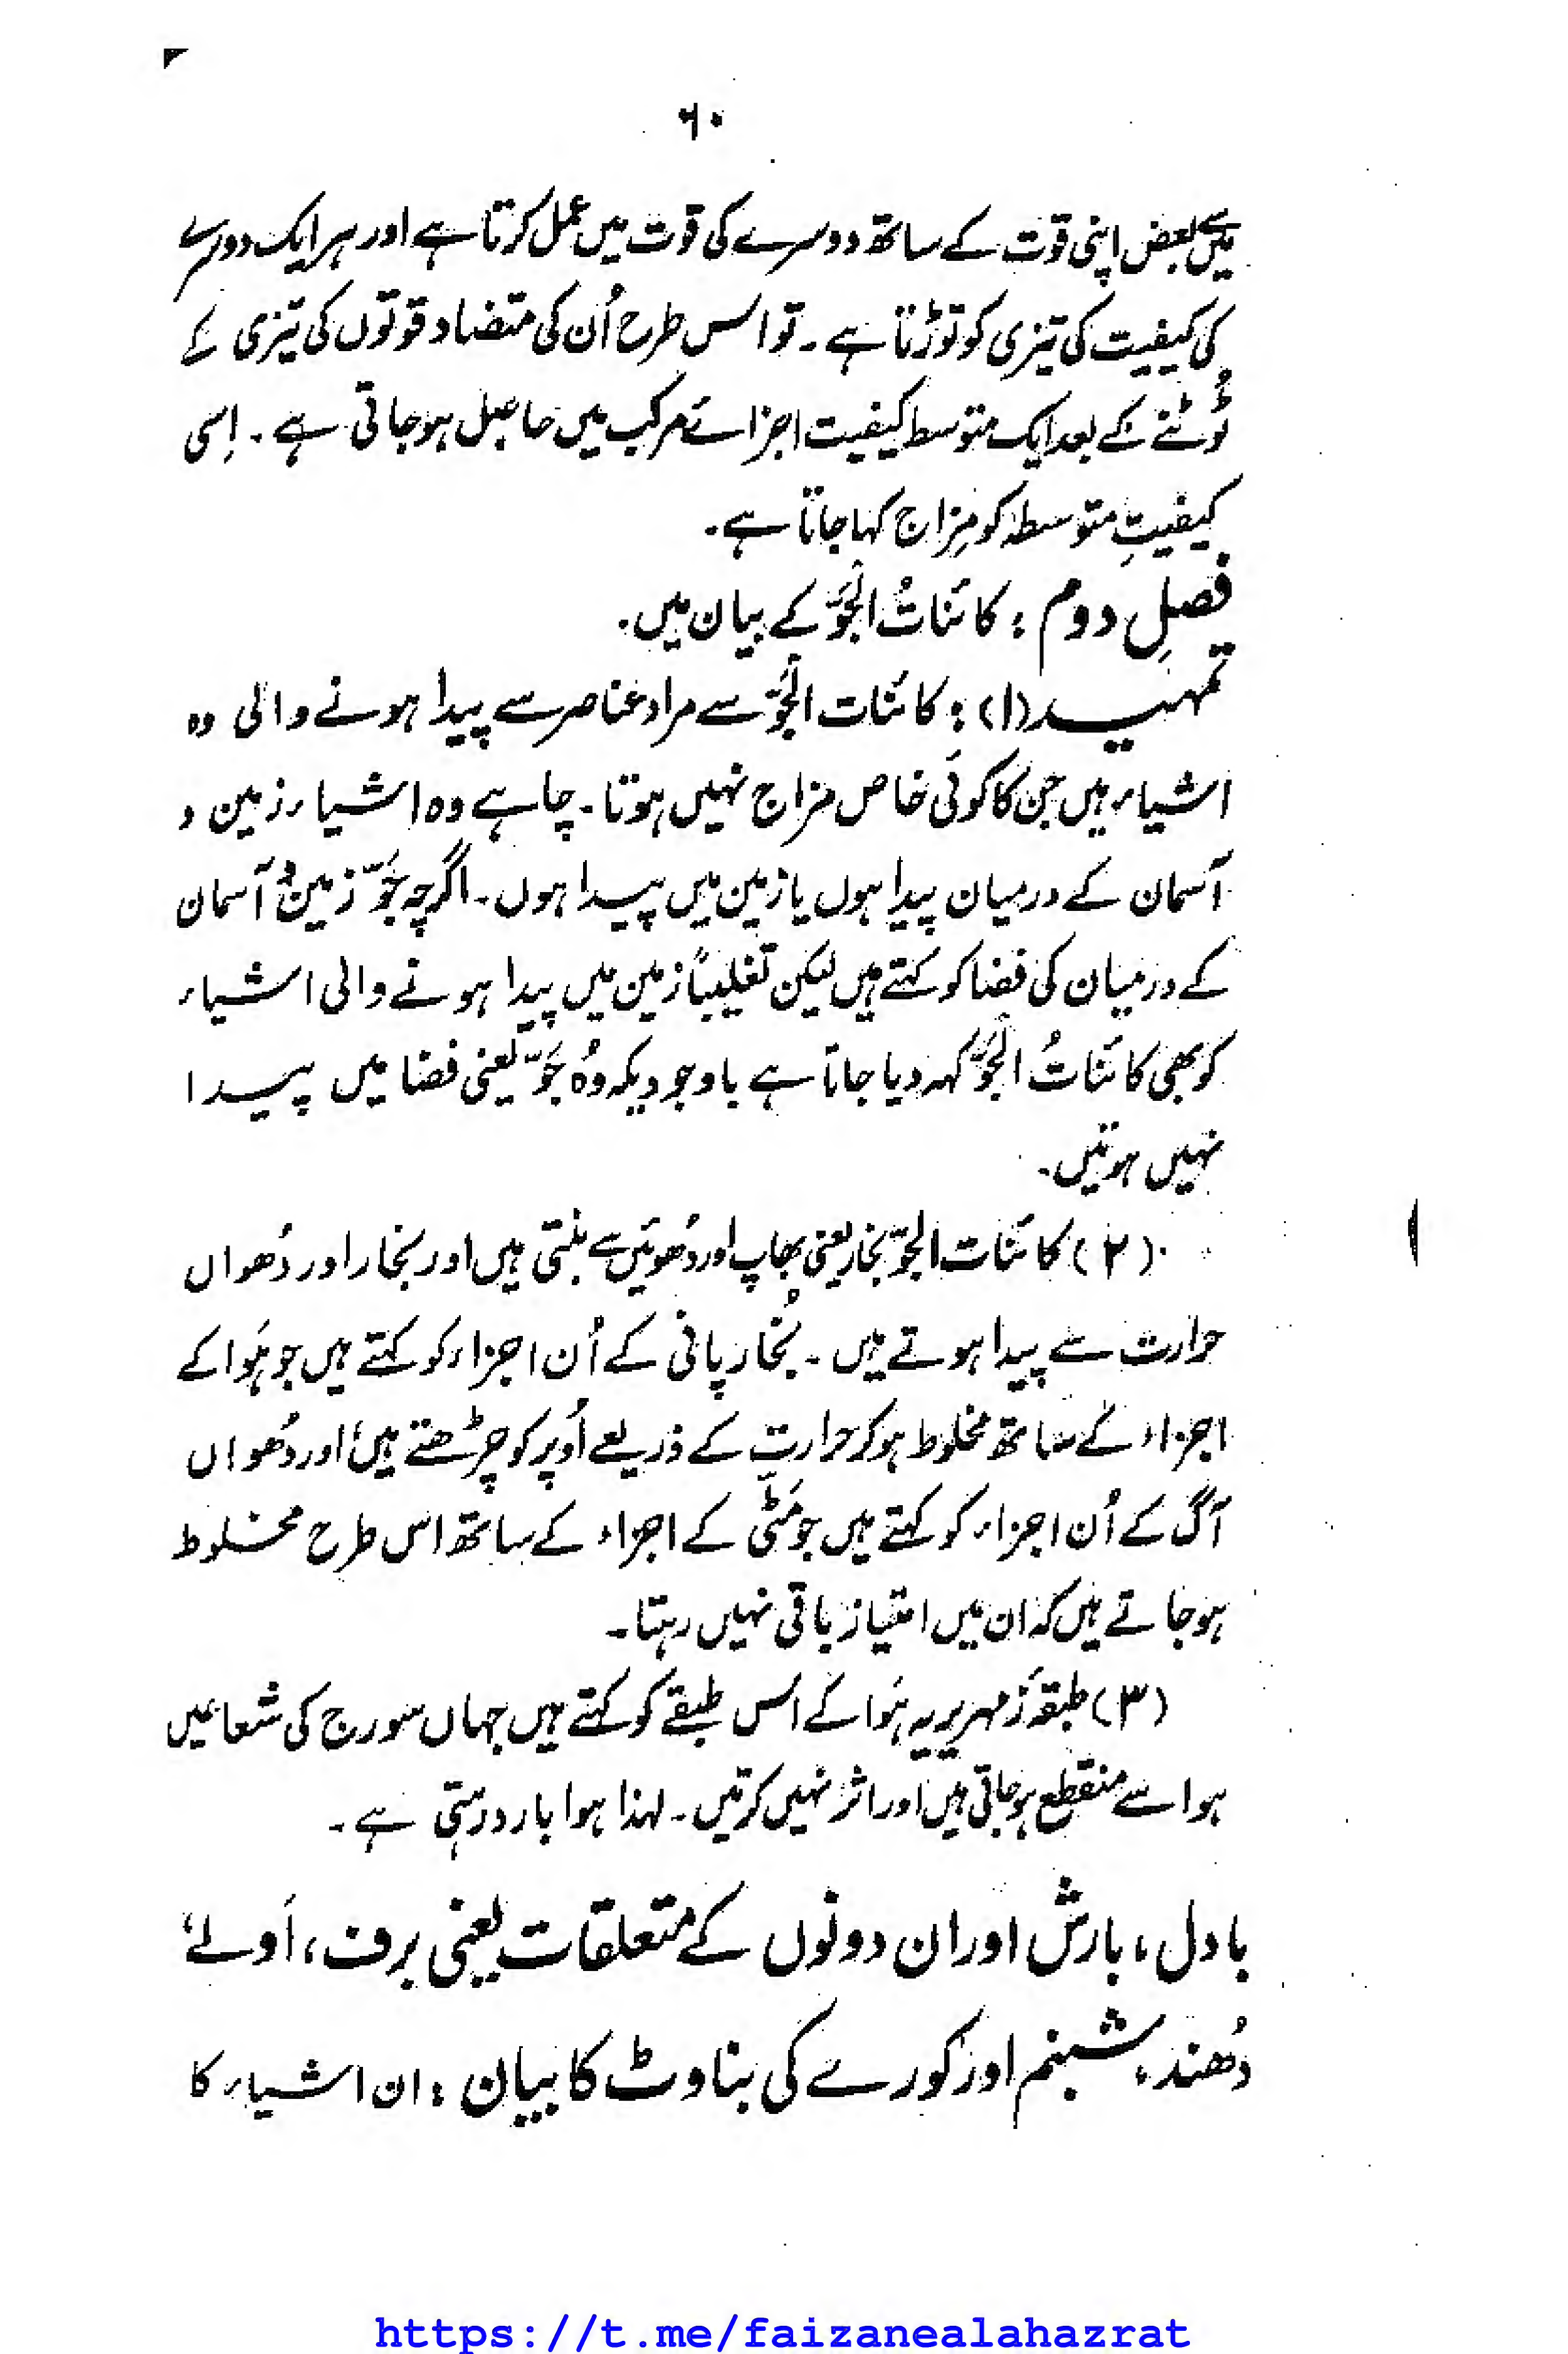 ۶۰
میں بعض اپنی قوت کے ساتھ دوسرے کی قوت میں عمل کرتا ہے اور ہر ایک دوسرے
کی کیفیت کی تیزی کو توڑتا ہے۔ تو اس طرح اُن کی متضاد قوتوں کی تیزی کے
ٹُوٹنے کے بعد ایک متوسط کیفیت اجزائے مرکب میں حاصل ہو جاتی ہے۔ اِسی
کیفیتِ متوسطہ کو مِزاج کہا جاتا ہے۔
فصلِ دوم : کائناتُ الجَوّ کے بیان میں۔
تمہید (۱) : کائنات الجَوّ سے مراد عناصر سے پیدا ہونے والی وہ
اشیاء ہیں جن کا کوئی خاص مزاج نہیں ہوتا۔ چاہے وہ اشیاء زمین و
آسمان کے درمیان پیدا ہوں یا زمین میں پیدا ہوں۔ اگرچہ جَوّ زمین و آسمان
کے درمیان کی فضا کو کہتے ہیں لیکن تغلیباً زمین میں پیدا ہونے والی اشیاء
کو بھی کائناتُ الجَوّ کہہ دیا جاتا ہے باوجودیکہ وُہ جَوّ یعنی فضا میں پیدا
نہیں ہوتیں۔
(۲) کائنات الجوّ بخار یعنی بھاپ اور دُھوئیں سے بنتی ہیں اور بخار اور دُھواں
حرارت سے پیدا ہوتے ہیں۔ بُخار پانی کے اُن اجزاء کو کہتے ہیں جو ہَوا کے
اجزاء کے ساتھ مخلوط ہو کر حرارت کے ذریعے اُوپر کو چڑھتے ہیں، اور دُھواں
آگ کے اُن اجزاء کو کہتے ہیں جو مَٹی کے اجزاء کے ساتھ اس طرح مخلوط
ہو جاتے ہیں کہ ان میں امتیاز باقی نہیں رہتا۔
(۳) طبقہ زمہریریہ ہَوا کے اُس طبقے کو کہتے ہیں جہاں سورج کی شعاعیں
ہوا سے منقطع ہو جاتی ہیں اور اثر نہیں کرتیں۔ لہذا ہوا بارد رہتی ہے۔
بادل، بارش اور ان دونوں کے متعلقات یعنی برف، اَولے،
دُھند، شبنم اور کورے کی بناوٹ کا بیان : ان اشیاء کا
https://t.me/faizanealahazrat